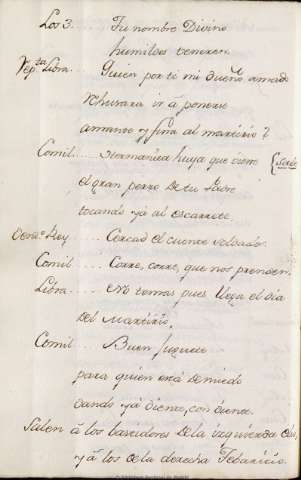 Los 3... Tu nombre Divino
humildes veneren.
Rep.ta Libra... Quien por ti mi Dueño amado
rehusara ir á ponerse
amante y fina al martirio?
Comil... Hermanica huya que viene {Sale
el gran perro de tu Padre
tocando yá al escarrete.
Rey... Cercad el cuente volcado.
Comil... Corre, corre, que nos prenden.
Libra... No temas pues llega el dia
del Martirio,
Comil... Buen juguete
para quien está de miedo
dando yá diente, con diente.
Salen á los bastidores de la izquierda
y á los de la derecha Febaricio.